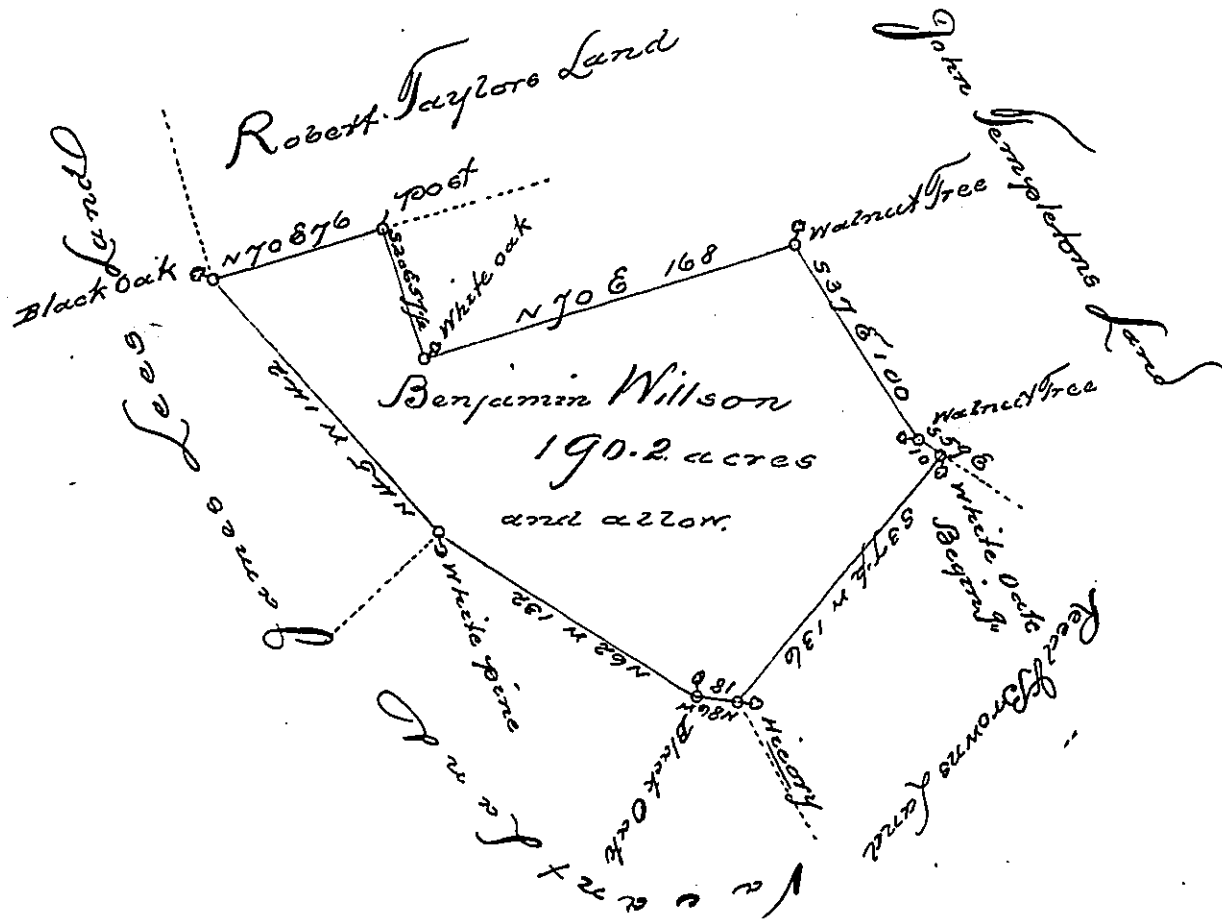 Robert Taylors Land
John Templetons Land
James Lees Land
Black Oak
N 70 E 76
post
S 20 E 57 1/2
White Oak
N 70 E 168
Walnut Tree
S 37 E 100
Walnut Tree
S 59 E
10
White Oak
Begining
Benjamin Willson
190.2 acres
and allow.
N 45 W 142
White pine
N 62 W 132
S 37 1/2 W 136
N 86 W
18
Black Oak
Hicory
Reed & Browns Land
Vacant Land